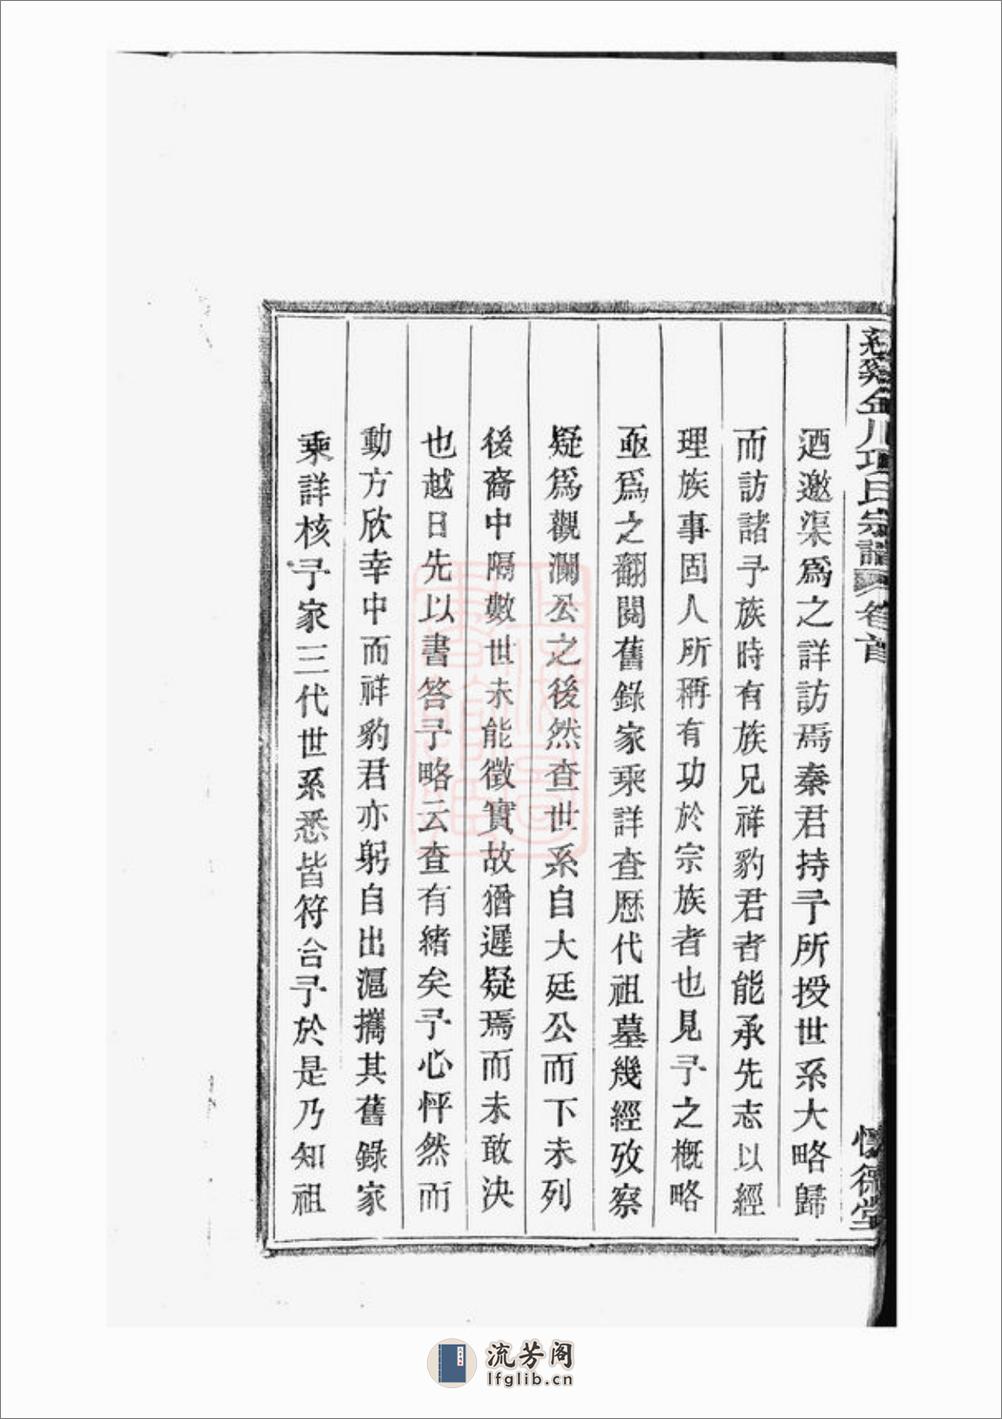 慈谿金川項氏宗譜 卷首 懷德堂
迺邀渠爲之詳訪焉秦君持予所授世系大略歸
而訪諸予族時有族兄祥豹君者能承先志以經
理族事固人所稱有功於宗族者也見予之概略
亟爲之翻閱舊錄家乘詳查歷代祖墓幾經攷察
疑爲觀瀾公之後然查世系自大廷公而下未列
後裔中隔數世未能徵實故猶遲疑焉而未敢決
也越日先以書答予略云查有緒矣予心怦然而
動方欣幸中而祥豹君亦躬自出滬攜其舊錄家
乘詳核予家三代世系悉皆符合予於是乃知祖
流芳阁
lfglib.cn